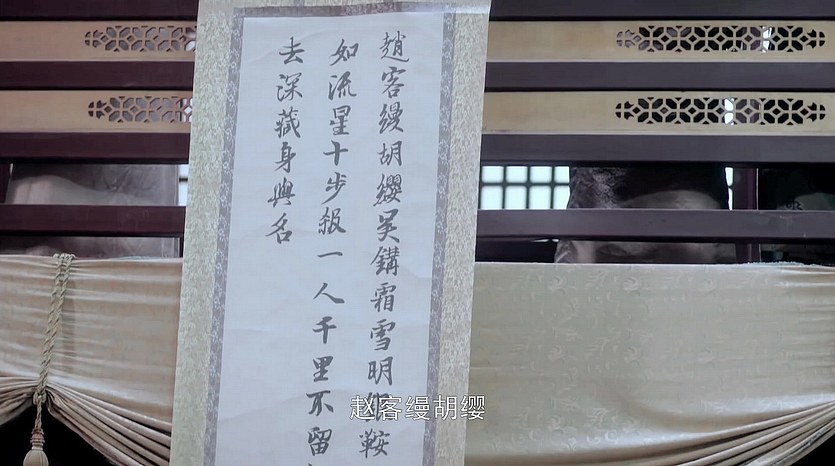 趙客縵胡纓吳霜雪明鞍
如流星十步殺一人千里不留
去深藏身與名
赵客缦胡缨